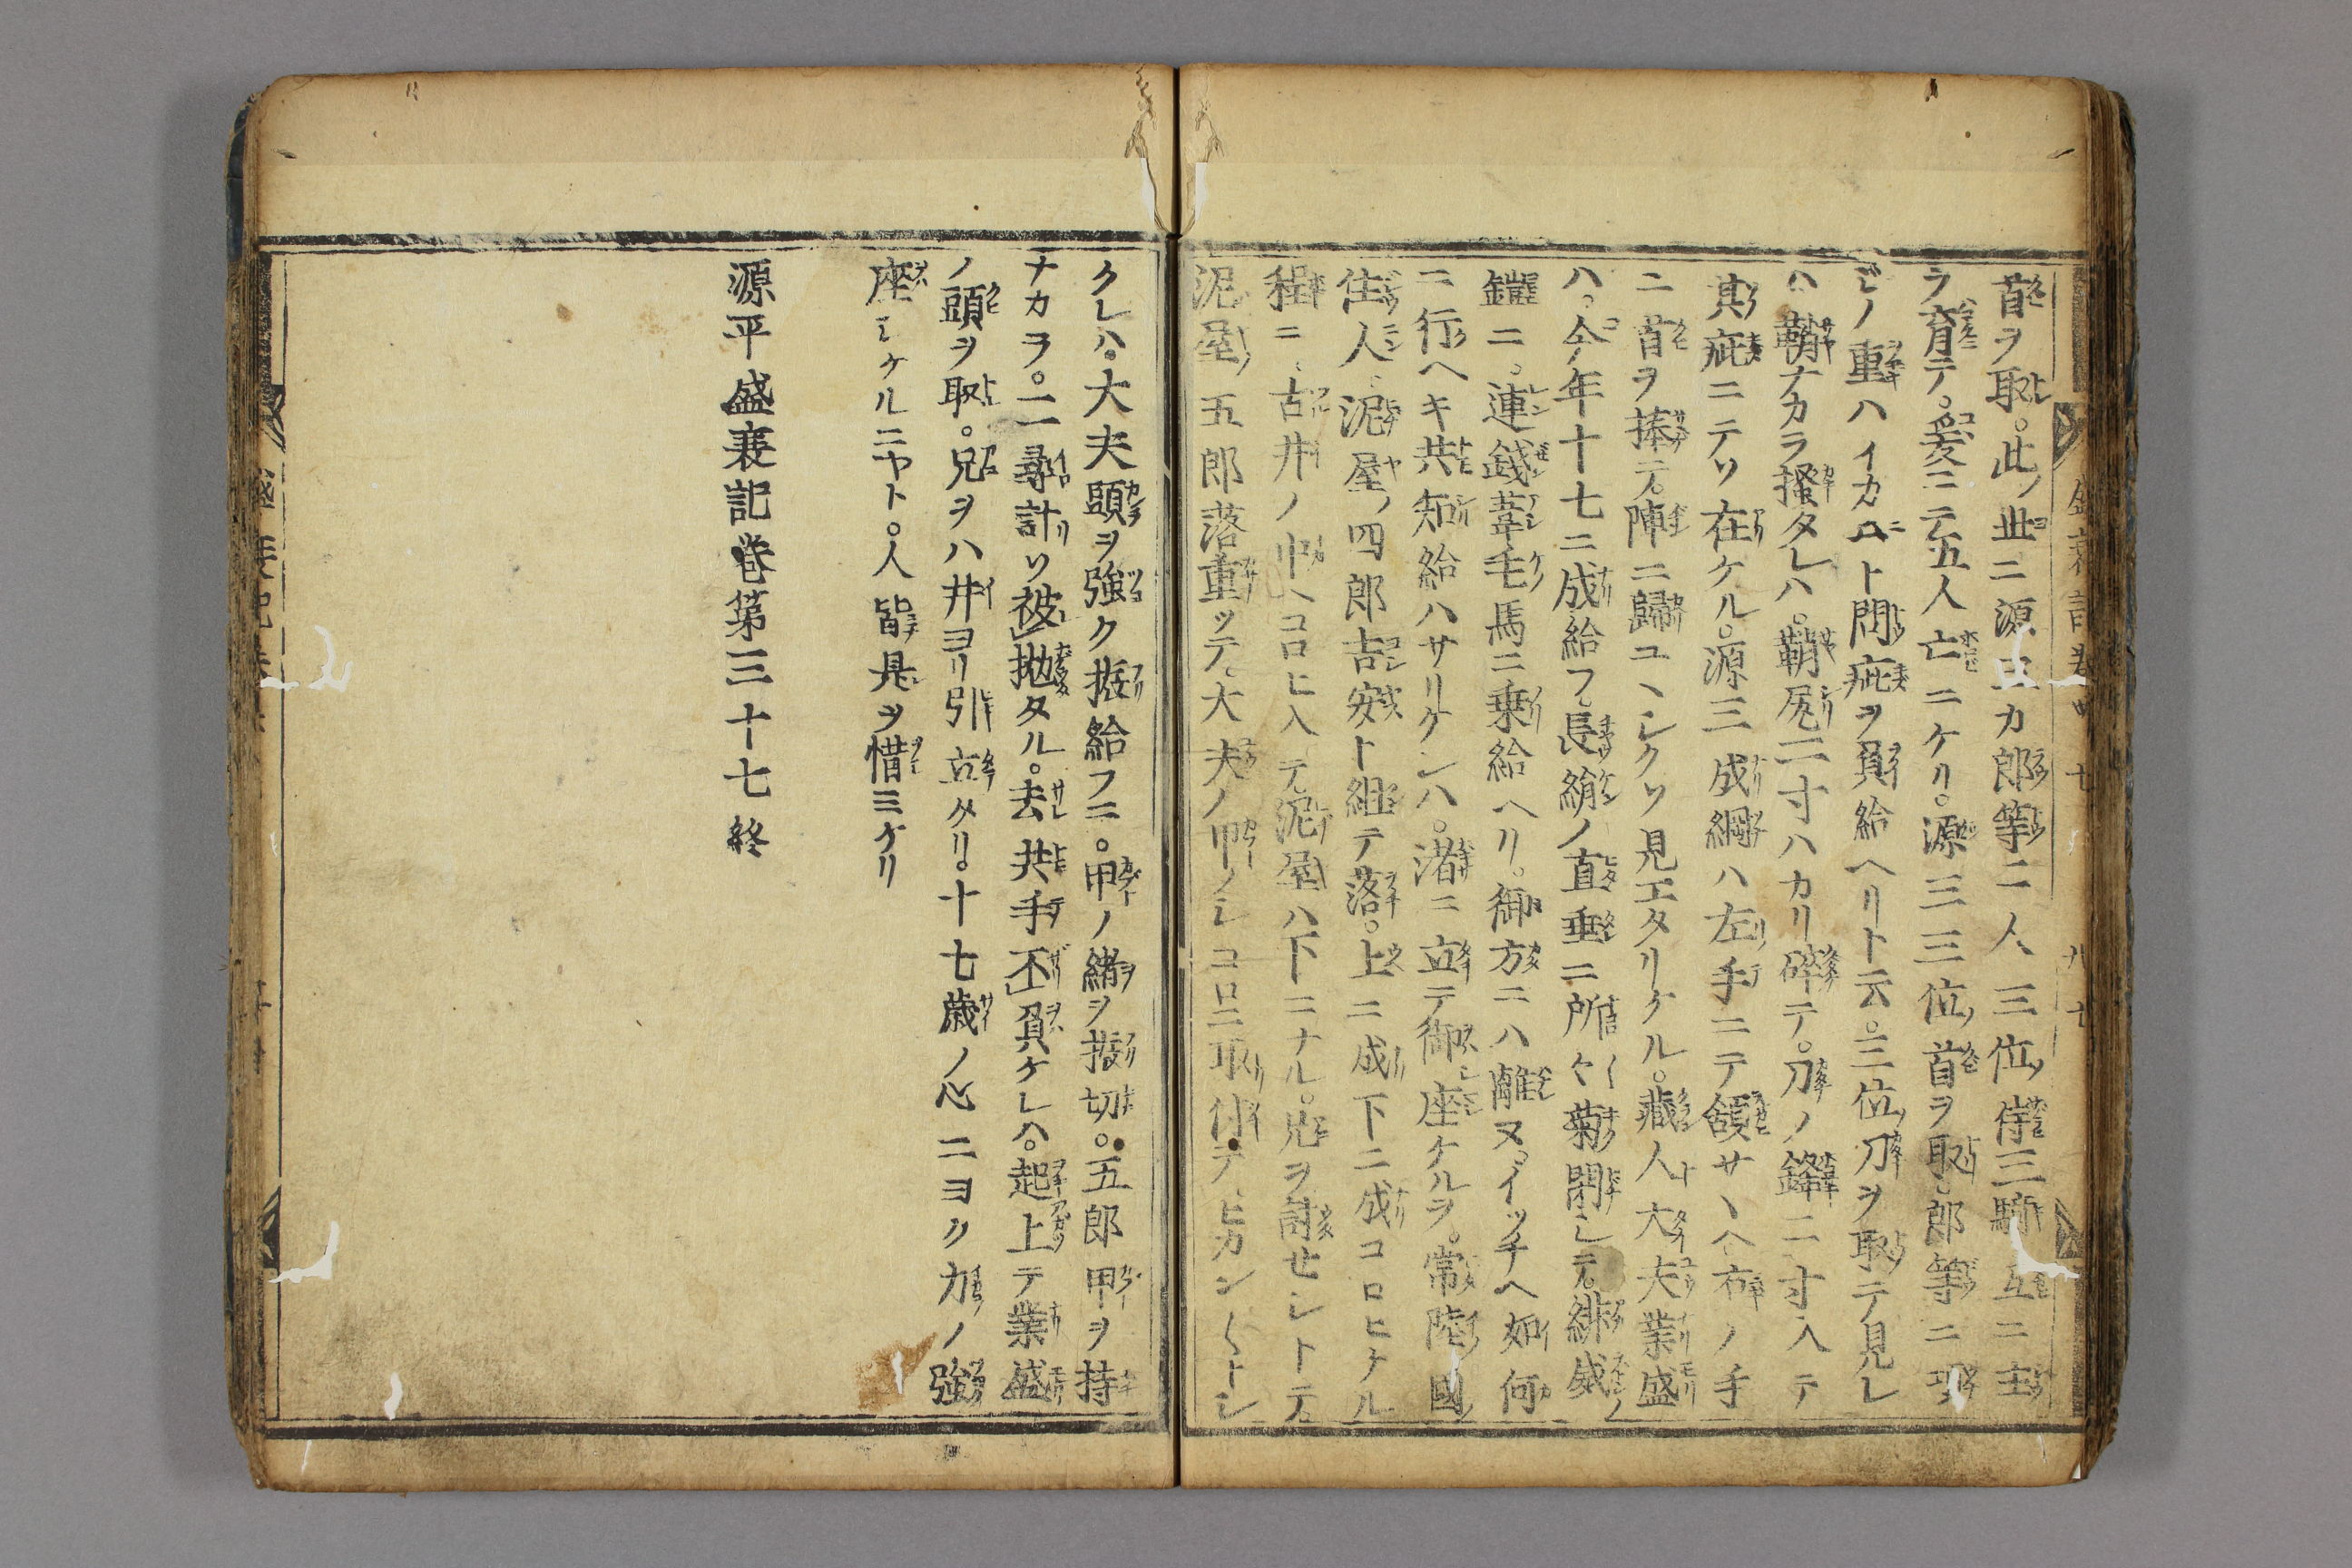 首ヲ取。此ノ世ニ源五カ郎等二人、三位ノ侍三騎互ニ主
ヲ育テ。爰ニテ五人亡ニケリ。源三三位ノ首ヲ取、郎等ニ
ビノ重ハイカニト問疵ヲ負給ヘリト云。三位ノ刀ヲ取テ見レ
ハ、鞘ナカラ掻タレハ。鞘尻二寸ハカリ砕テ。刀ノ鋒二寸入テ
其疵ニテソ在ケル。源三成綱ハ左ノ手ニテ額サヽヘ右ノ手
ニ首ヲ捧テ。陣ニ歸ユヽシクソ見エタリケル。藏人大夫業盛
ハ。今年十七ニ成給フ。長絹ノ直垂ニ所々菊閉シテ。緋威ノ
鎧ニ。連錢葦毛馬ニ乗給ヘリ。御方ニハ離ヌ。イツチヘ如何
ニ行ヘキ共知給ハサリケレハ。渚ニ立テ御座ケルヲ。常陸國ノ
住人、泥屋ノ四郎吉安ト組テ落。上ニ成下ニ成コロヒナル
程ニ、古井ノ中ヘコロヒ入テ。泥屋ハ下ニナル。兄ヲ討セシトテ。
泥屋ノ五郎落重ツテ。大夫ノ甲ノシコロニ取付テ、ヒカン〱トシ
クレハ。大夫頭ヲ強ク振給フニ。甲ノ緒ヲ振切。五郎甲ヲ持
ナカラ。二尋計ソ被抛タル。去共手不負ケレハ。起上テ業盛
ノ頭ヲ取。兄ヲハ井ヨリ引立タリ。十七歳ノ心ニヨク力ノ強
座シケルニヤト。人皆是ヲ惜ミケリ
源平盛衰記巻第三十七終